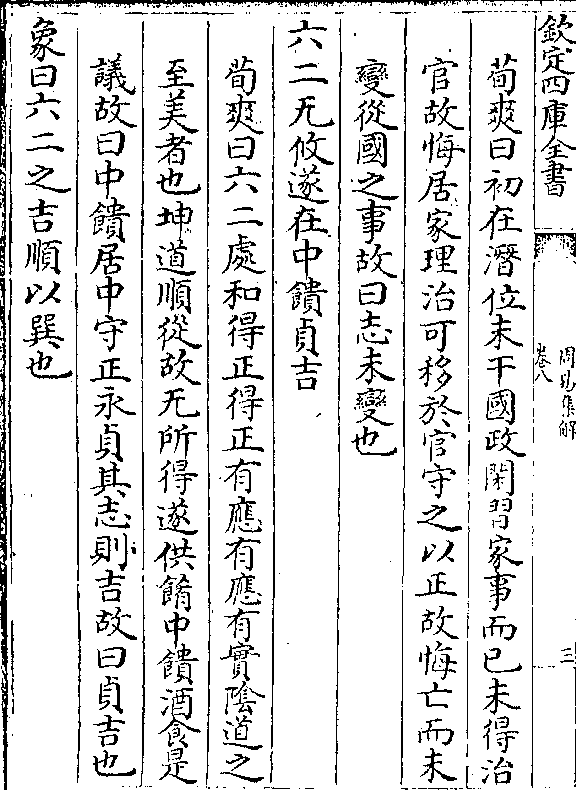 欽定四庫全書
周易集解
卷八
三
荀爽曰初在潛位未干國政閑習家事而已未得治
官故悔居家理治可移於官守之以正故悔亡而未
變從國之事故曰志未變也
六二无攸遂在中饋貞吉
荀爽曰六二處和得正得正有應有應有實陰道之
至美者也坤道順從故无所得遂供餚中饋酒食是
議故曰中饋居中守正永貞其志則吉故曰貞吉也
象曰六二之吉順以巽也